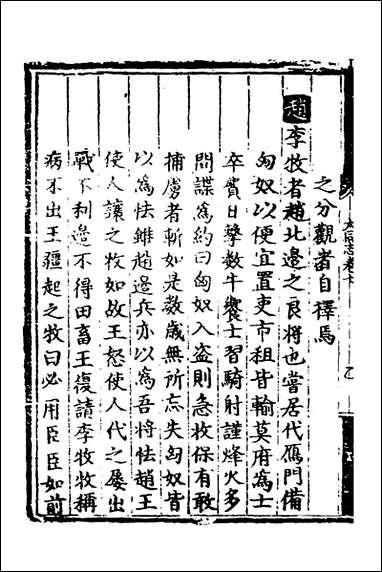 之分觀者自擇焉
趙李牧者趙北邊之良將也嘗居代鴈門備
匈奴以便宜置吏市租皆輸莫府為士
卒費日擊數牛饗士習騎射謹烽火多
間諜為約曰匈奴入盗則急收保有敢
捕虜者斬如是數歲無所亡失匈奴皆
以為怯雖趙邊兵亦以為吾將怯趙王
使人讓之牧如故王怒使人代之屢出
戰不利邊不得田畜王復請李牧牧稱
病不出王彊起之牧曰必用臣臣如前